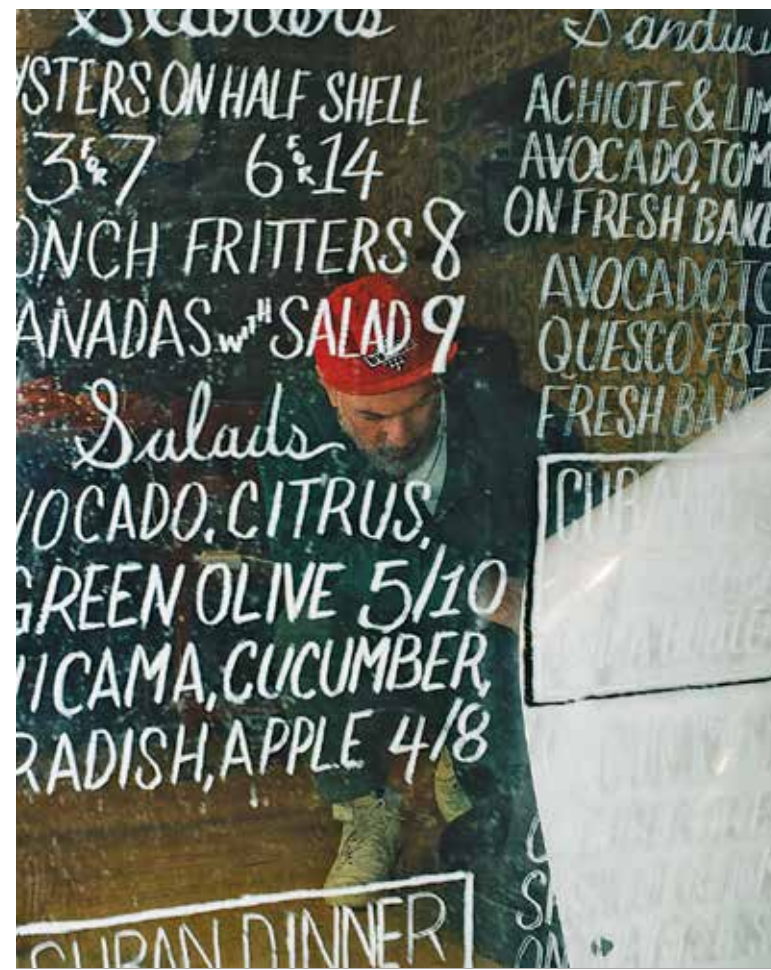 Starters
YSTERS ON HALF SHELL
3 FOR 7 6 FOR 14
ONCH FRITTERS 8
ANADAS WITH SALAD 9
Salads
VOCADO, CITRUS,
GREEN OLIVE 5/10
JICAMA, CUCUMBER,
RADISH, APPLE 4/8
CUBAN DINNER
Sandwi
ACHIOTE & LIM
AVOCADO, TOM
ON FRESH BAKE
AVOCADO, TO
QUESCO FRE
FRESH BAKE
CUBAN